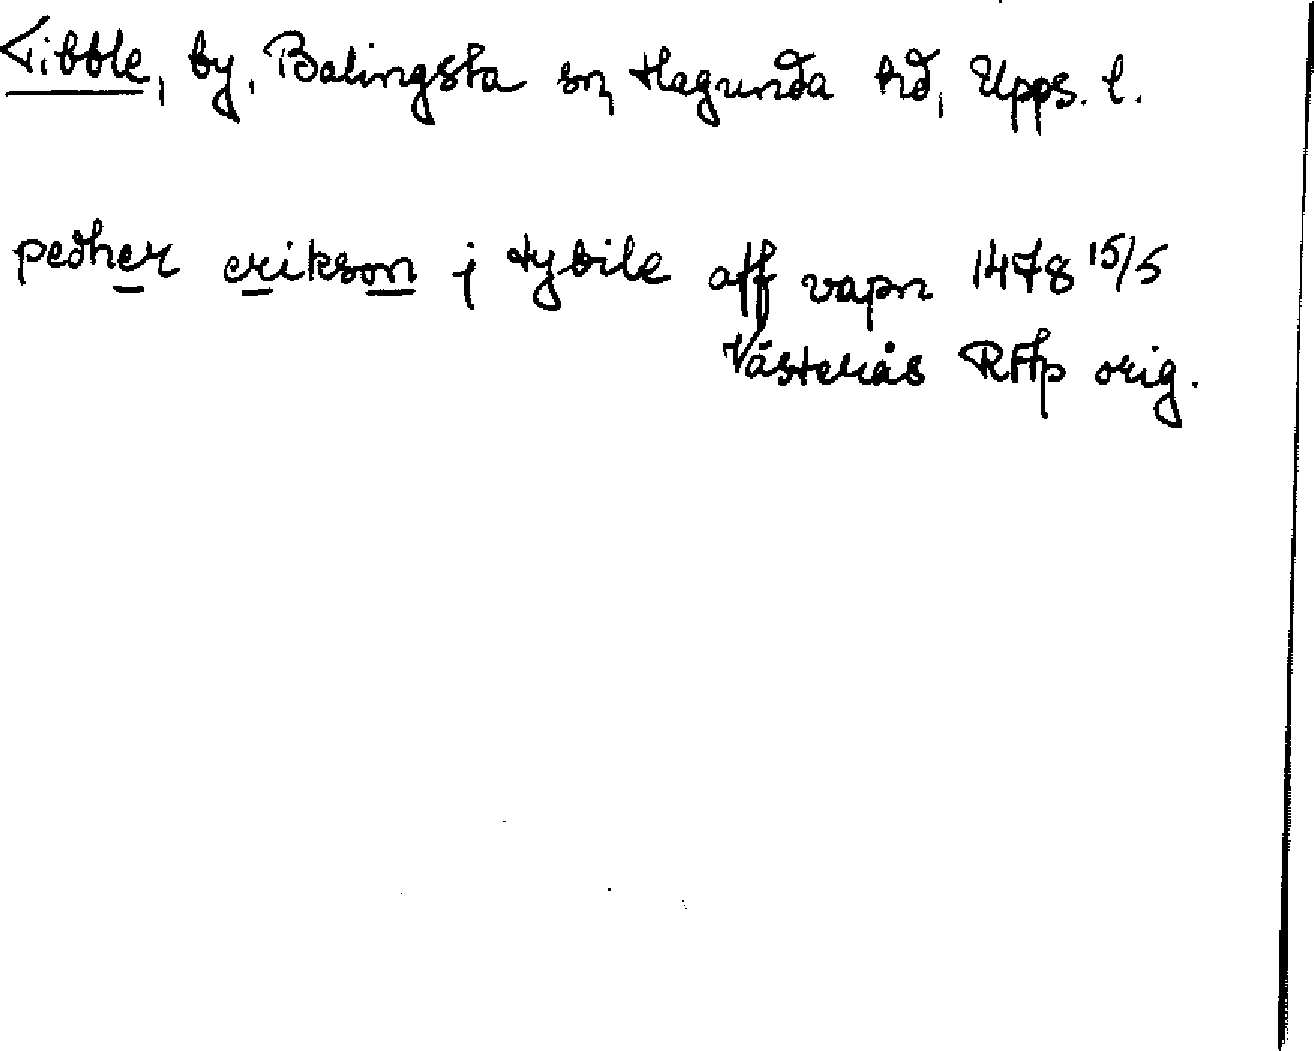 Tibble, by, Balingsta sn, Hagunda hd, Upps. l.
pedher erikson j tybile aff vapn 1478 15/5
Västerås RAp orig.